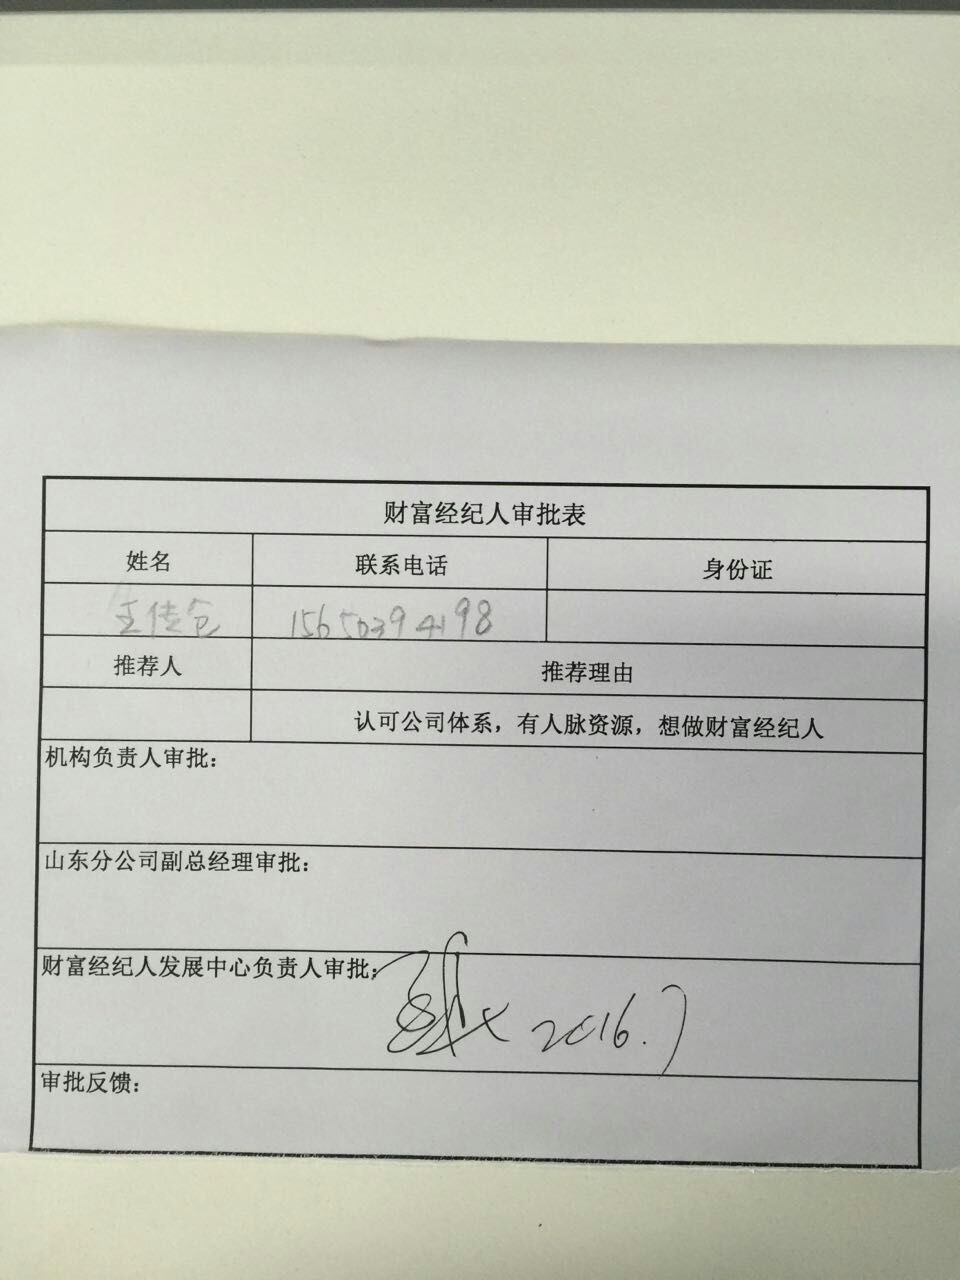 财富经纪人审批表
姓名 联系电话 身份证
王传仓 15650394198
推荐人 推荐理由
认可公司体系，有人脉资源，想做财富经纪人
机构负责人审批：
山东分公司副总经理审批：
财富经纪人发展中心负责人审批：
2016.7
审批反馈：